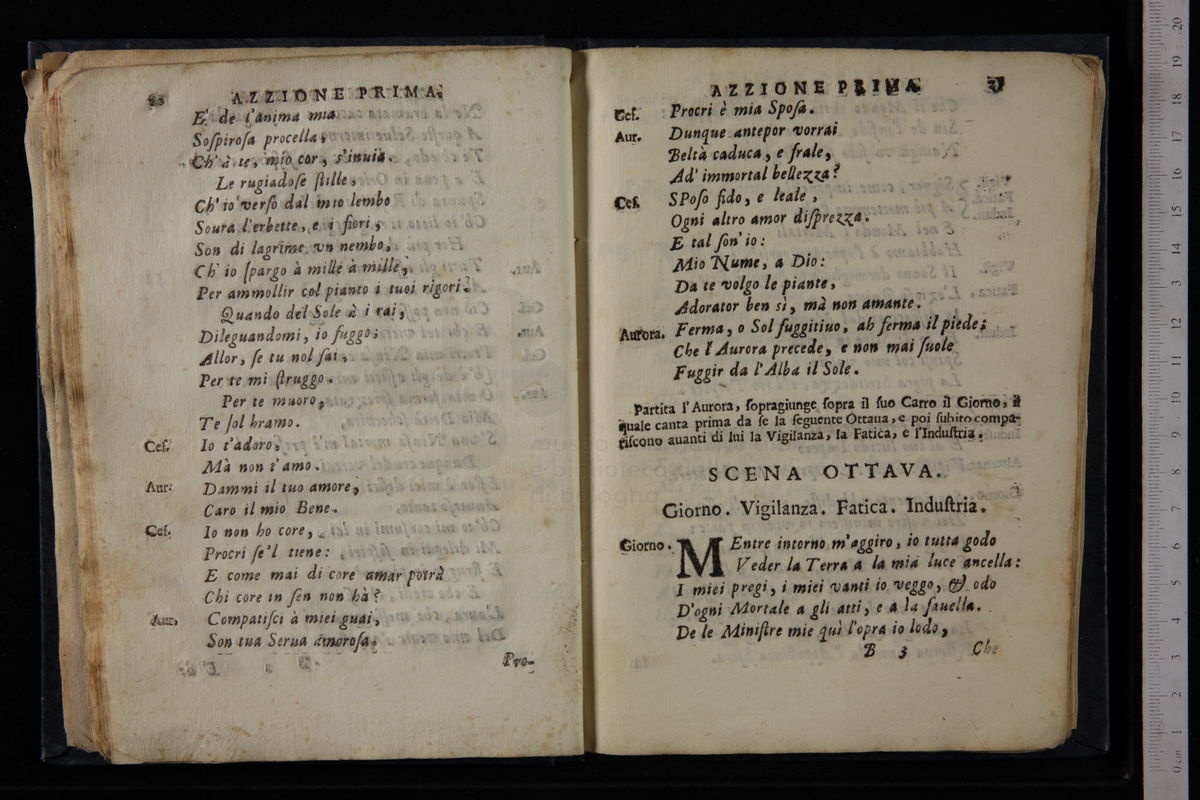 AZZIONE PRIMA.
E' de l'anima mia
Soſpiroſa procella,
Ch' à te, mio cor, s'inuia.
Le rugiadoſe ſtille,
Ch' io verſo dal mio lembo
Soura l'erbette, e i fiori,
Son di lagrime vn nembo,
Ch' io ſpargo à mille à mille,
Per ammollir col pianto i tuoi rigori.
Quando del Sole à i rai,
Dileguandomi, io fuggo;
Allor, ſe tu nol ſai,
Per te mi ſtruggo.
Per te muoro,
Te ſol bramo.
Ceſ. Io t'adoro,
Mà non t'amo.
Aur. Dammi il tuo amore,
Caro il mio Bene.
Ceſ. Io non ho core,
Procri ſe'l tiene:
E come mai di core amar potrà
Chi core in ſen non hà?
Aur. Compatiſci à miei guai,
Son tua Serua amoroſa.
Pro-
AZZIONE PRIMA. 21
Ceſ. Procri è mia Spoſa.
Aur. Dunque antepor vorrai
Beltà caduca, e frale,
Ad' immortal bellezza?
Ceſ. SPoſo fido, e leale,
Ogni altro amor diſprezza.
E tal ſon' io:
Mio Nume, a Dio:
Da te volgo le piante,
Adorator ben sì, mà non amante.
Aurora. Ferma, o Sol fuggitiuo, ah ferma il piede;
Che l'Aurora precede, e non mai ſuole
Fuggir da l'Alba il Sole.
Partita l'Aurora, ſopragiunge ſopra il ſuo Carro il Giorno, il
quale canta prima da ſe la ſeguente Ottaua, e poi ſubito compa-
riſcono auanti di lui la Vigilanza, la Fatica, e l'Induſtria.
SCENA OTTAVA.
Giorno. Vigilanza. Fatica. Induſtria.
Giorno. MEntre intorno m'aggiro, io tutta godo
Veder la Terra a la mia luce ancella:
I miei pregi, i miei vanti io veggo, & odo
D'ogni Mortale a gli atti, e a la fauella.
De le Miniſtre mie quì l'opra io lodo,
B 3 Che